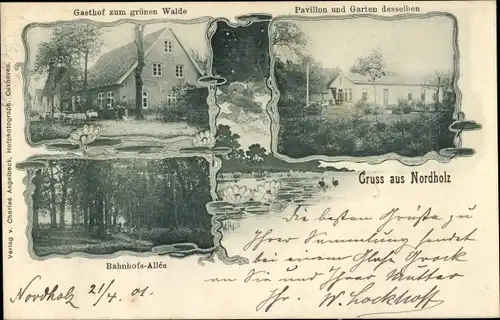 Gasthof zum grünen Walde
Pavillon und Garten desselben
Verlag v. Charles Angelbeck, Hofphotograph. Cuxhaven.
Gruss aus Nordholz
Bahnhofs-Allée
Die besten Grüsse zu
Ihrer Sammlung sendet
bei einem Glase Grock
an Sie und Ihrer Mutter
Ihr. W. Lockhoff
Nordholz 21/4. 01.